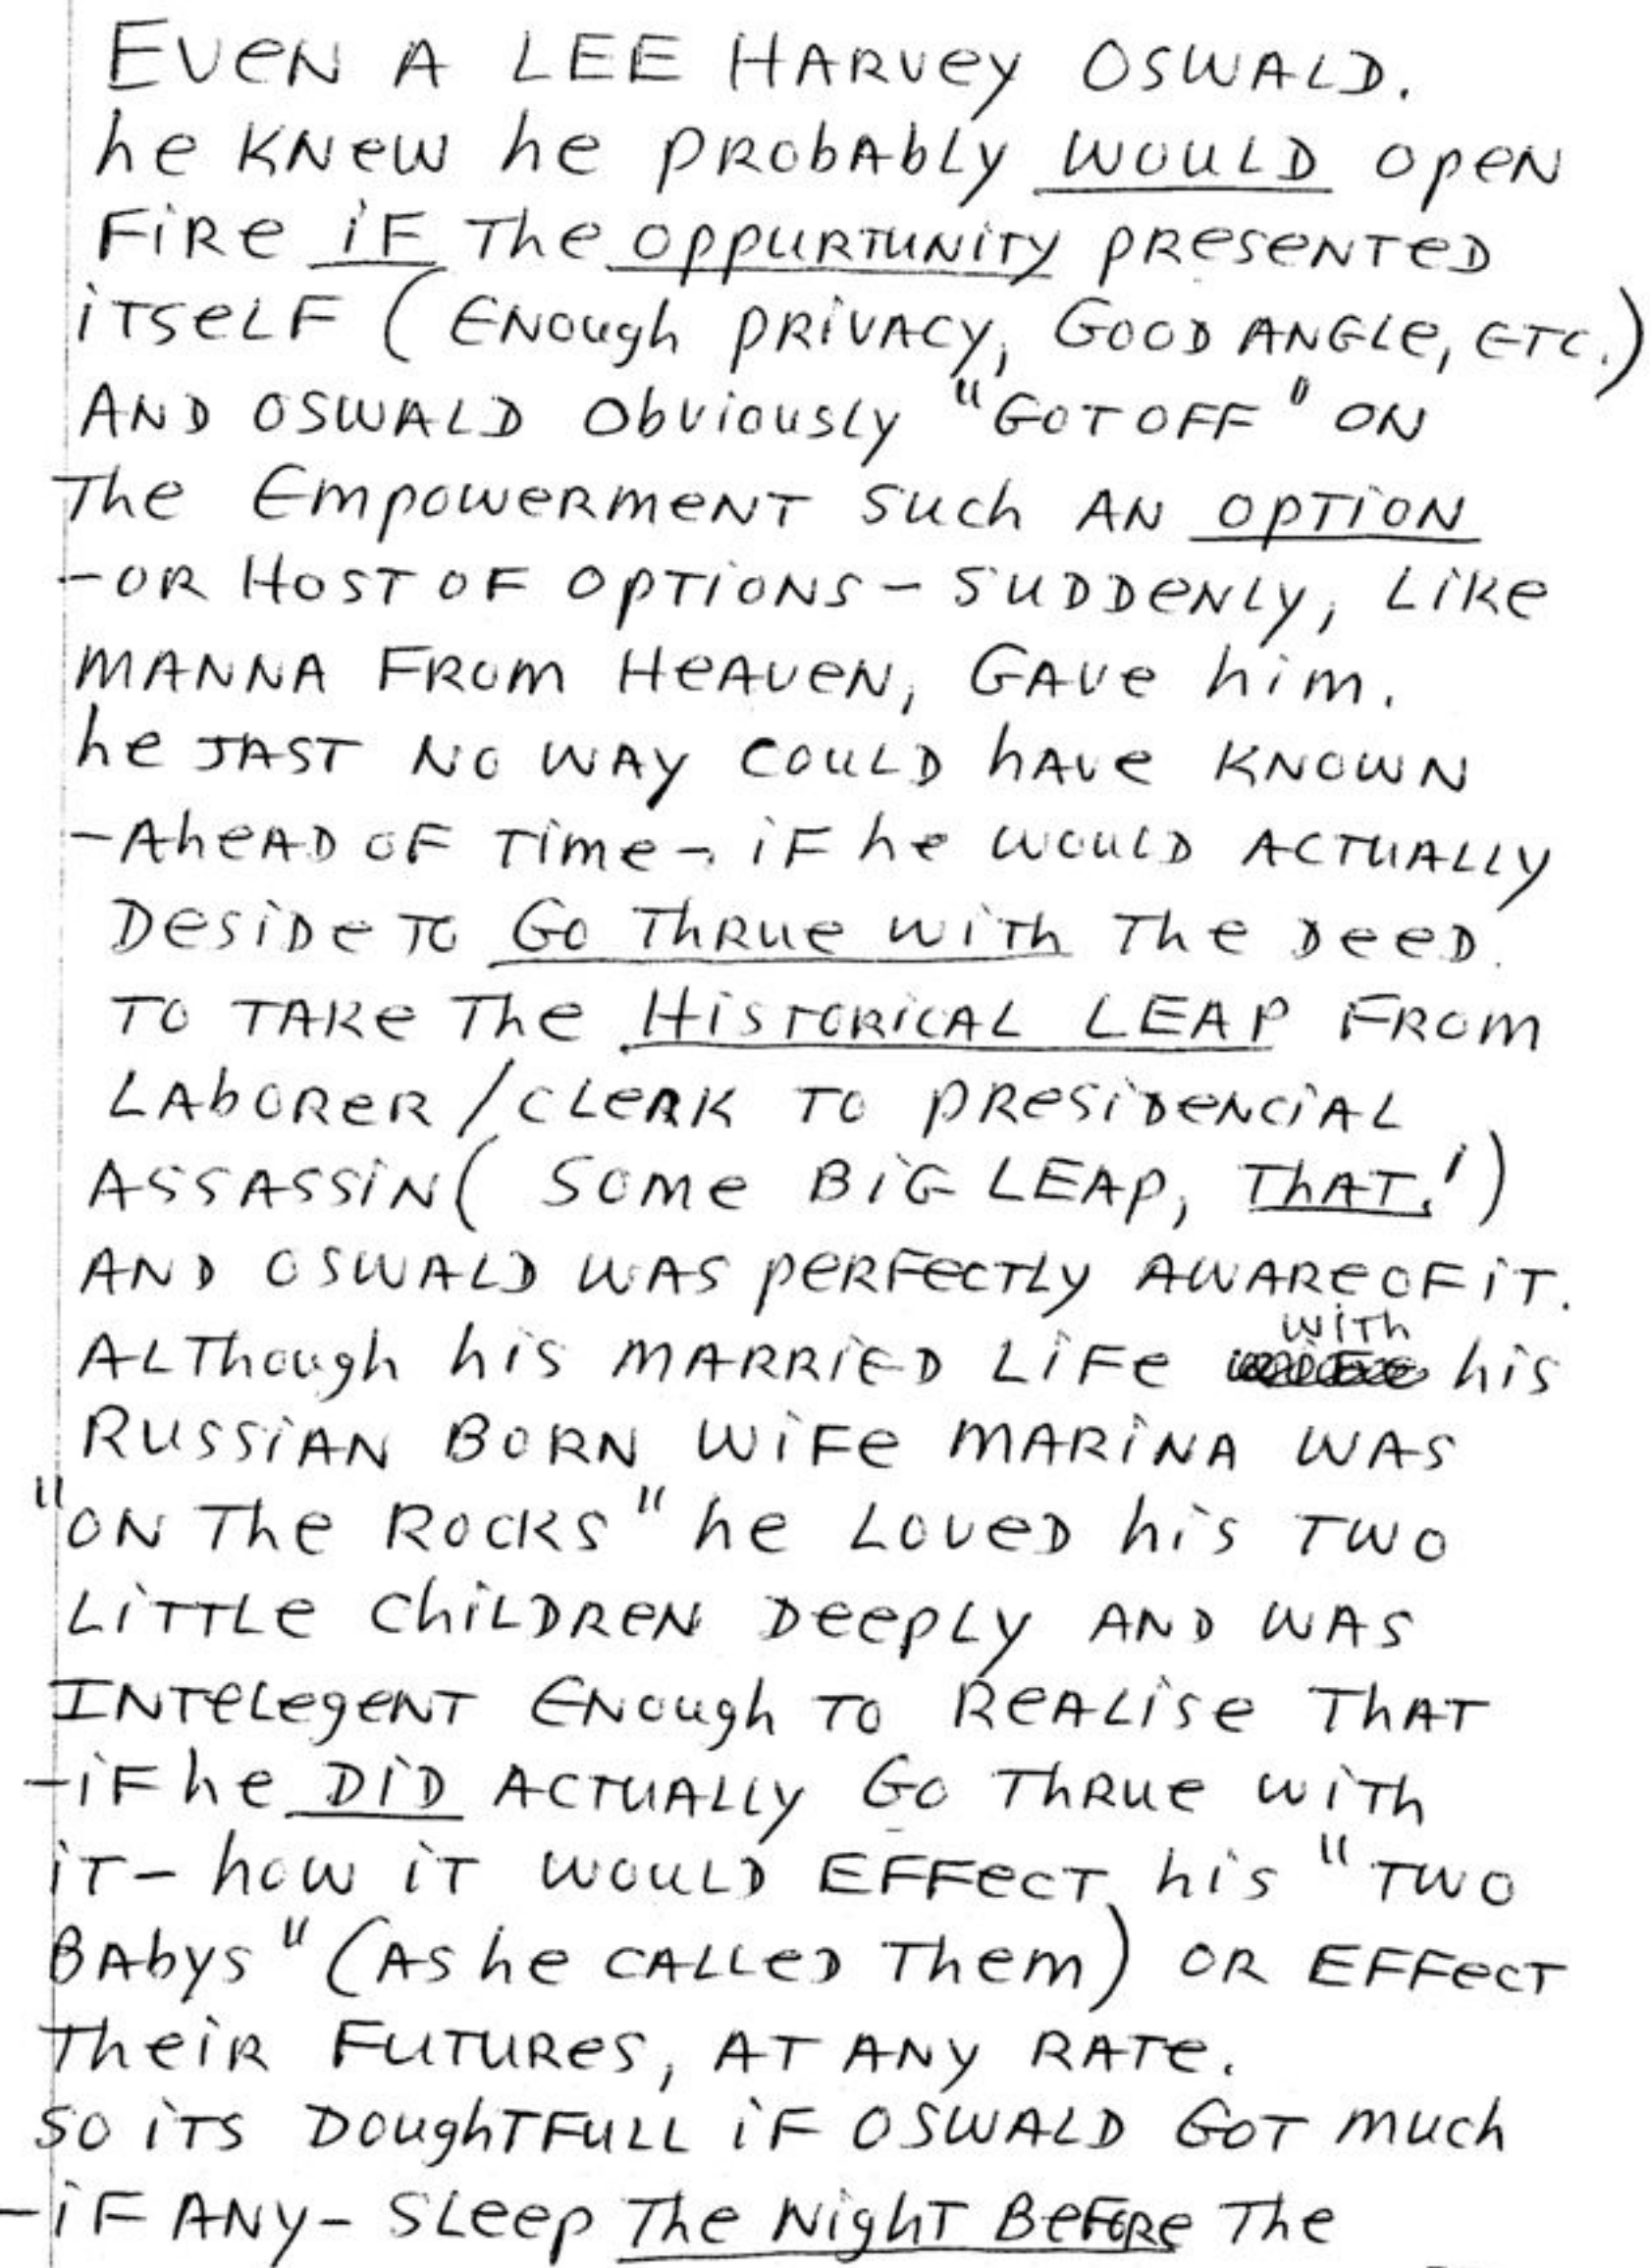 EVEN A LEE HARVEY OSWALD.
he KNEW he PRObAbLY WOULD OPEN
FIRE IF The OPPURTUNITY PRESENTED
ITSELF (ENOugh PRIVACY, GOOD ANGLE, ETC.)
AND OSWALD ObVIOUSLY "GOT OFF" ON
The EMPOWERMENT SUCh AN OPTION
-OR HOST OF OPTIONS- SUDDENLY, LIKE
MANNA FROM HEAVEN, GAVE him.
he JAST NO WAY COULD hAVE KNOWN
-AhEAD OF TIME- IF he WOULD ACTUALLY
DESIDE TO GO ThRUE WITh The DEED.
TO TAKE The HISTORICAL LEAP FROM
LAbORER/CLERK TO PRESIDENCIAL
ASSASSIN (SOME BIG LEAP, ThAT!)
AND OSWALD WAS PERFECTLY AWARE OF IT.
ALThOugh his MARRIED LIFE WITh his
RUSSIAN BORN WIFE MARINA WAS
"ON The ROCKS" he LOVED his TWO
LITTLE ChILDREN DEEPLY AND WAS
INTELEgENT ENOugh TO REALISE ThAT
-IF he DID ACTUALLY GO ThRUE WITh
IT- hOW IT WOULD EFFECT his "TWO
BAbYS" (AS he CALLED ThEM) OR EFFECT
ThEIR FUTURES, AT ANY RATE.
SO ITS DOughTFULL IF OSWALD GOT MUCh
-IF ANY- SLEEP The NIghT BEFORE The